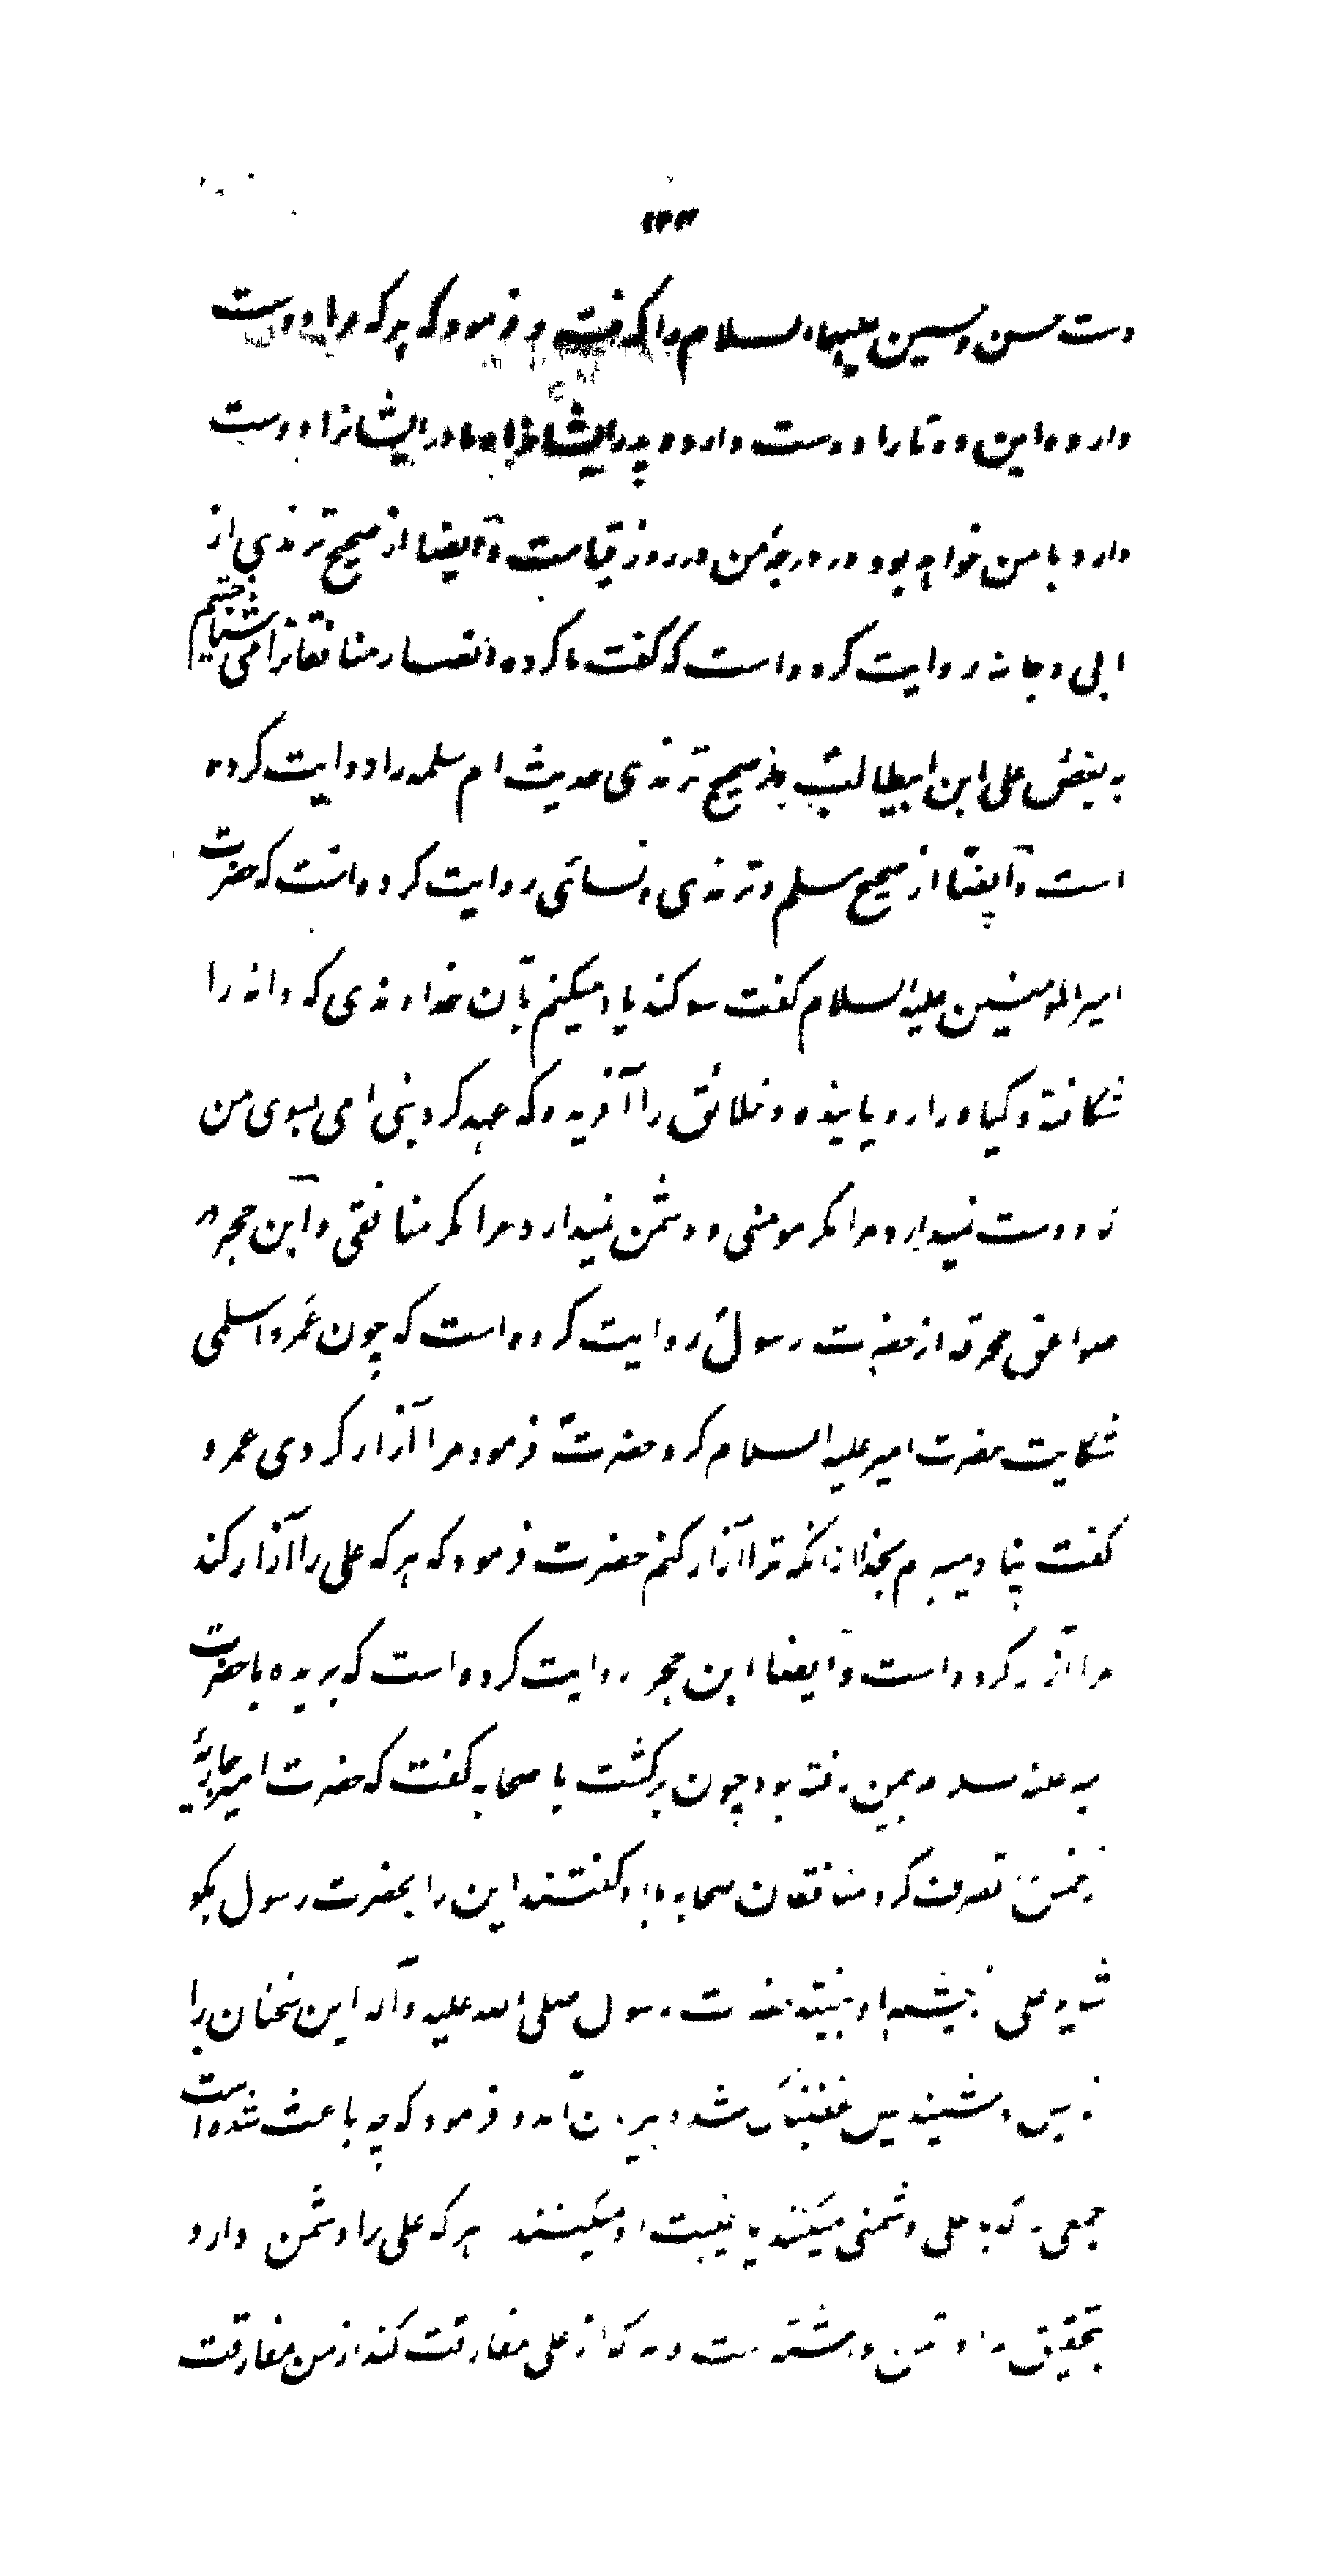 دست حسن و حسین علیهما السلام را گرفت و فرمود که هر که مرا دوست
دارد و این دو تا را دوست دارد و پدر ایشانرا و مادر ایشانرا دوست
دارد با من خواهد بود در درجهٔ من در روز قیامت و ایضا از صحیح ترمذی از
ابی دجانه روایت کرده است که گفت ما گروه انصار منافقانرا می شناختیم
به بغض علی ابن ابیطالب و در صحیح ترمذی حدیث ام سلمه را روایت کرده
است و ایضا از صحیح مسلم و ترمذی و نسائی روایت کرده است که حضرت
امیرالمومنین علیه السلام گفت سوگند یاد میکنم بآن خداوندی که دانه را
شکافته و گیاه را رویانیده و خلائق را آفریده که عهد کرد نبی امی بسوی من
که دوست نمیدارد مرا مگر مومنی و دشمن نمیدارد مرا مگر منافقی و ابن حجر در
صواعق محرقه از حضرت رسول روایت کرده است که چون عمرو اسلمی
شکایت حضرت امیر علیه السلام کرد حضرت فرمود مرا آزار کردی عمرو
گفت پناه میبرم بخدا از انکه ترا آزار کنم حضرت فرمود که هر که علی را آزار کند
مرا آزار کرده است و ایضا ابن حجر روایت کرده است که بریده با حضرت
بیمن رفته بود چون برگشت با صحابه گفت که حضرت امیر جاریهٔ
خمس تصرف کرد منافقان صحابه با او گفتند این را بحضرت رسول بگو
شاید علی از چشم او بیفتد حضرت رسول صلی الله علیه و آله این سخنان را
از پس در شنید پس غضبناک شد و بیرون آمد و فرمود که چه باعث شده است
جمعی را که با علی دشمنی میکنند یا غیبت او میکنند هر که علی را دشمن دارد
بتحقیق مرا دشمن داشته است و هر که از علی مفارقت کند از من مفارقت